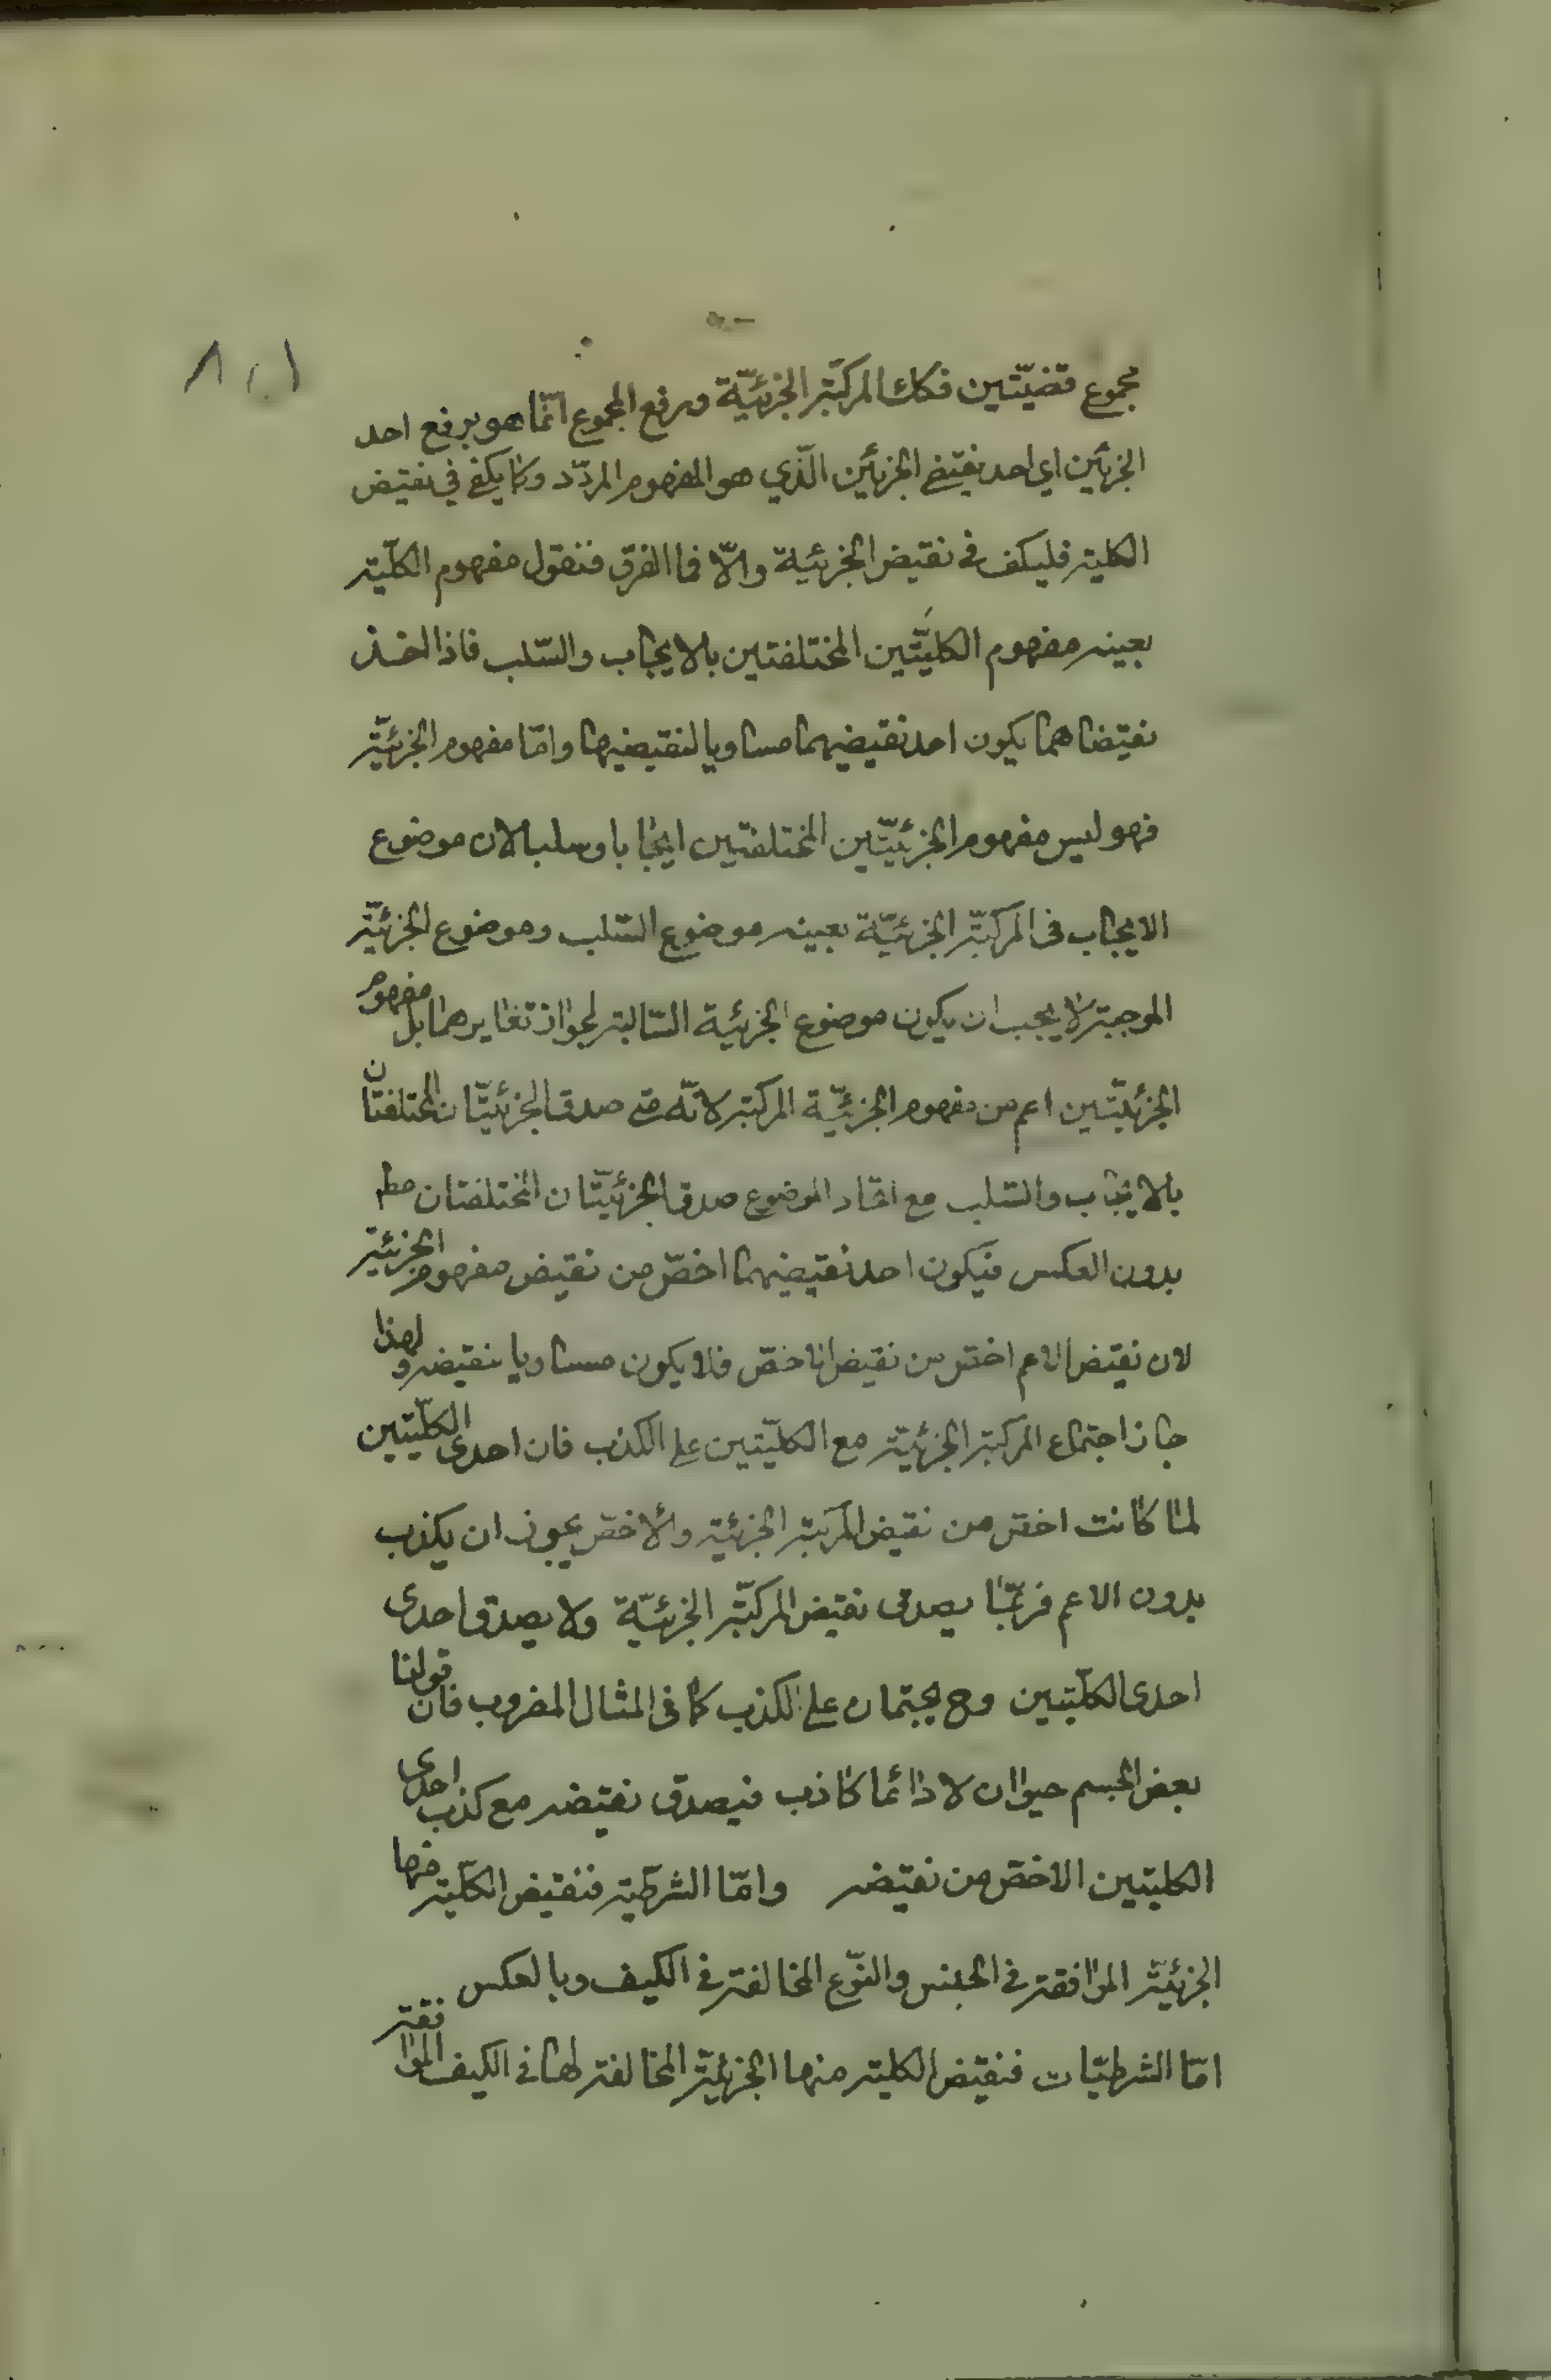 ١٠٨
مجموع قضيّتين فكك المركبّة الجزئيّة ورفع المجموع انّما هو برفع احد
الجزئين اي احد نقيضي الجزئين الّذي هو المفهوم المردّد وكما يكفي في نقيض
الكلية فليكف في نقيض الجزئية والّا فما الفرق فنقول مفهوم الكلّية
بعينه مفهوم الكليّتين المختلفتين بالايجاب والسّلب فاذا اخذ
نقيضاهما يكون احد نقيضيهما مساويا لنقيضيها وامّا مفهوم الجزئيّة
فهو ليس مفهوم الجزئيّتين المختلفتين ايجابا وسلبا لان موضوع
الايجاب في المركبّة الجزئيّة بعينه موضوع السّلب وموضوع الجزئيّة
الموجبة لا يجب ان يكون موضوع الجزئية السّالبة لجواز تغايرهما بل مفهوم
الجزئيّتين اعم من مفهوم الجزئيّة المركبة لانّه متى صدقت الجزئيّتان المختلفتان
بالايجاب والسّلب مع اتحاد الموضوع صدق الجزئيّتان المختلفتان مطم
بدون العكس فيكون احد نقيضيهما اخصّ من نقيض مفهوم الجزئيّة
لان نقيض الاعم اخصّ من نقيض الاخصّ فلا يكون مساويا لنقيضه ولهذا
جاز اجتماع المركبة الجزئيّة مع الكليّتين على الكذب فان احدى الكلّيتين
لمّا كانت اخصّ من نقيض المركبّة الجزئيّة والأخصّ يجوز ان يكذب
بدون الاعم فربّما يصدق نقيض المركبّة الجزئيّة ولا يصدق احدى
احدى الكلّيتين وح يجتمان على الكذب كما في المثال المضروب فان قولنا
بعض الجسم حيوان لا دائما كاذب فيصدق نقيضه مع كذب احدى
الكليتين الاخصّ من نقيضه وامّا الشرطيّة فنقيض الكلّية منها
الجزئيّة الموافقة في الجنس والنّوع المخالفة في الكيف وبالعكس
امّا الشرطيّات فنقيض الكلية منها الجزئيّة المخالفة لها في الكيف الموافقة